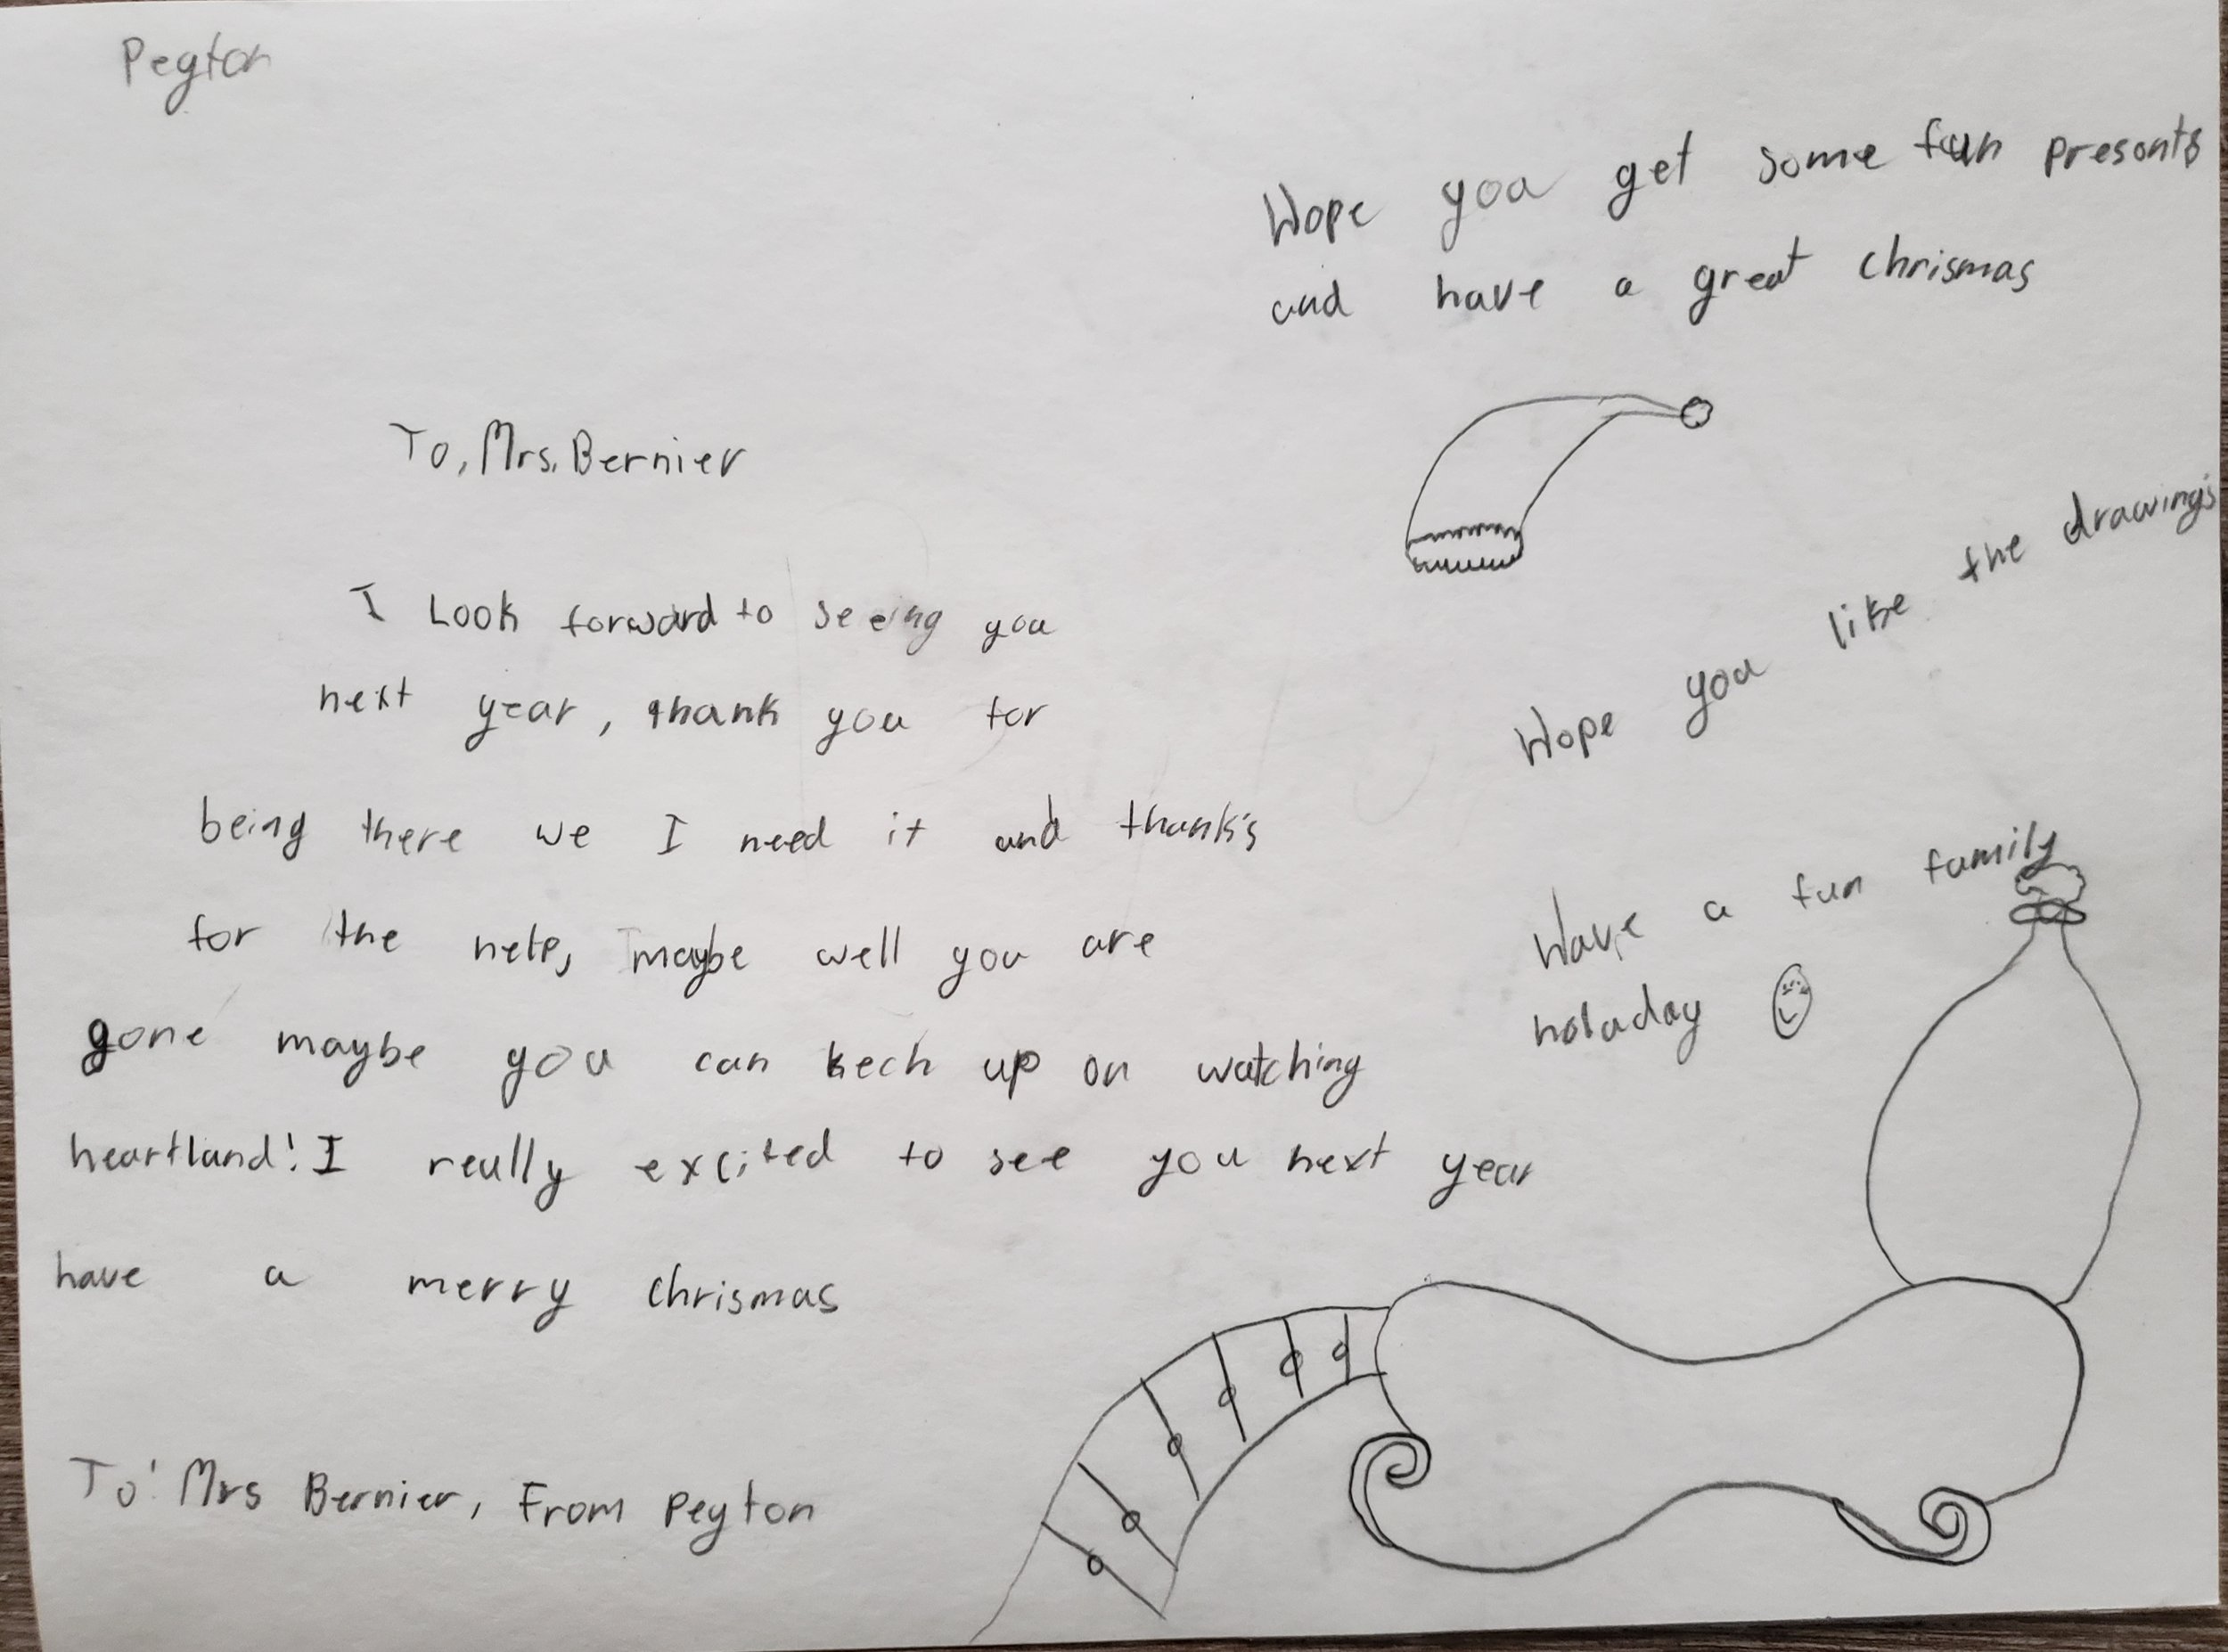 Peyton
Hope you get some fun presonts
and have a great chrismas
To, Mrs. Bernier
I Look forward to seeing you
next year, thank you for
being there we I need it and thank's
for the help, maybe well you are
gone maybe you can kech up on watching
heartland! I really excited to see you next year
have a merry chrismas
To! Mrs Bernier, From Peyton
Hope you like the drawing's
Have a fun family
holaday